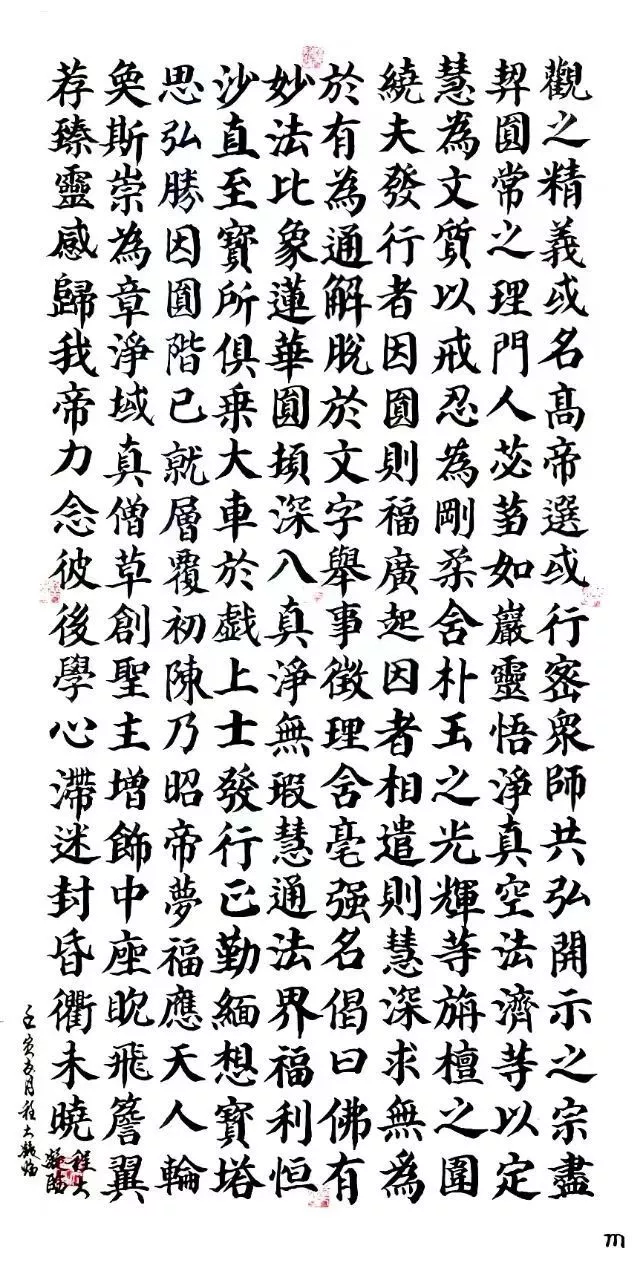 觀之精義或名高帝選或行密衆師共弘開示之宗盡
契圓常之理門人苾蒭如巖靈悟淨真空法濟等以定
慧為文質以戒忍為剛柔含朴玉之光輝等旃檀之圍
繞夫發行者因圓則福廣起因者相遣則慧深求無為
於有為通解脫於文字舉事徵理含毫强名偈曰佛有
妙法比象蓮華圓頓深入真淨無瑕慧通法界福利恒
沙直至寶所俱乘大車於戲上士發行正勤緬想寶塔
思弘勝因圓階已就層覆初陳乃昭帝夢福應天人輪
奐斯崇為章淨域真僧草創聖主增飾中座眈飛簷翼
荐臻靈感歸我帝力念彼後學心滯迷封昏衢未曉
壬寅五月程大臨